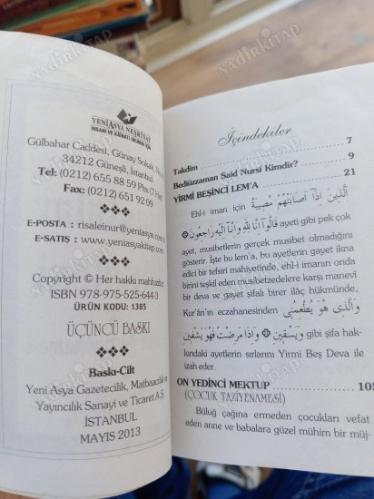 YENİ ASYA NEŞRİYAT
Gülbahar Caddesi, Günay Sokak,
34212 Güneşli, İstanbul
Tel: (0212) 655 88 59 Pbx
Fax: (0212) 651 92 09
E-POSTA : risaleinur@yeniasya.com.tr
E-SATIŞ : www.yeniasyakitap.com
Copyright © Her hakkı mahfuzdur
ISBN 978-975-525-644-3
ÜRÜN KODU: 1385
ÜÇÜNCÜ BASKI
Baskı-Cilt
Yeni Asya Gazetecilik, Matbaacılık ve
Yayıncılık Sanayi ve Ticaret A.Ş.
İSTANBUL
MAYIS 2013
İçindekiler
Takdim 7
Bediüzzaman Said Nursî Kimdir? 9
YİRMİ BEŞİNCİ LEM'A 21
Ehl-i iman için اَلَّذِينَ اِذَٓا اَصَابَتْهُمْ مُصِيبَةٌ
قَالُٓوا اِنَّا لِلّٰهِ وَاِنَّٓا اِلَيْهِ رَاجِعُونَ ayeti gibi pek çok
ayet, musibetlerin gerçek musibet olmadığını
gösterir. İşte bu lem'a, bu ayetlerin gayet ikna
edici bir tefsiri mahiyetinde, ehl-i imanan onda
birini teşkil eden musibetzedelere karşı manevi
bir deva ve gayet şifalı birer ilâç hükmünde,
Kur'ân'ın eczahanesinden وَالَّذِى هُوَ يُطْعِمُنِى
وَيَسْقِينِ وَاِذَا مَرِضْتُ فَهُوَ يَشْفِينِ gibi şifa hak-
kındaki ayetlerin sırlarını Yirmi Beş Deva ile
izah eder.
ON YEDİNCİ MEKTUP 105
(ÇOCUK TAZİYENAMESİ)
Büluğ çağına ermeden çocukları vefat
eden anne ve babalara güzel mühim bir müj-
NADİRKİTAP